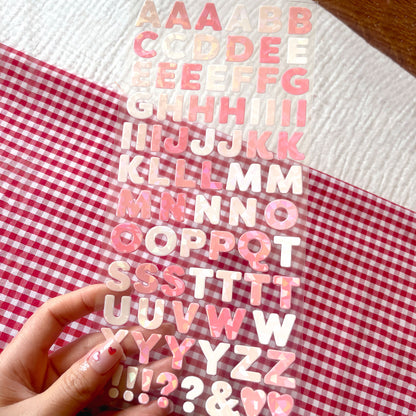 AAAABB
CCDDEE
EEEEFFG
GHHHIIII
IIIJJJKK
KLLLMM
MNNNO
OOPPQT
SSSTTTT
UUVWW
XYYYZZ
!!!??&